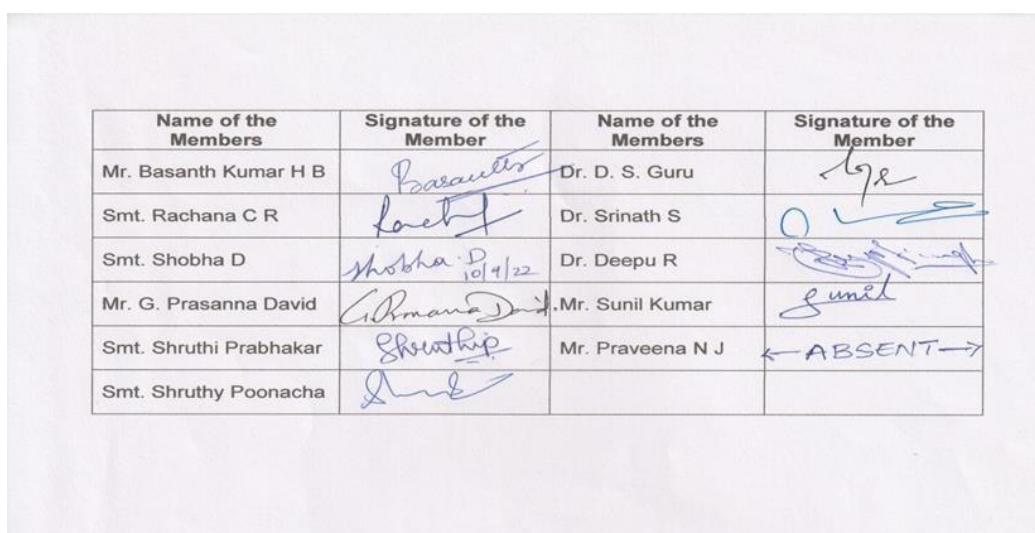 Name of the Members Signature of the Member Name of the Members Signature of the Member
Mr. Basanth Kumar H B Dr. D. S. Guru
Smt. Rachana C R Dr. Srinath S
Smt. Shobha D Shobha. D 10/9/22 Dr. Deepu R
Mr. G. Prasanna David Mr. Sunil Kumar Sunil
Smt. Shruthi Prabhakar Shruthip Mr. Praveena N J ABSENT
Smt. Shruthy Poonacha